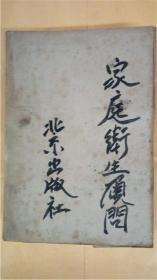 家庭衛生顧問
北京出版社